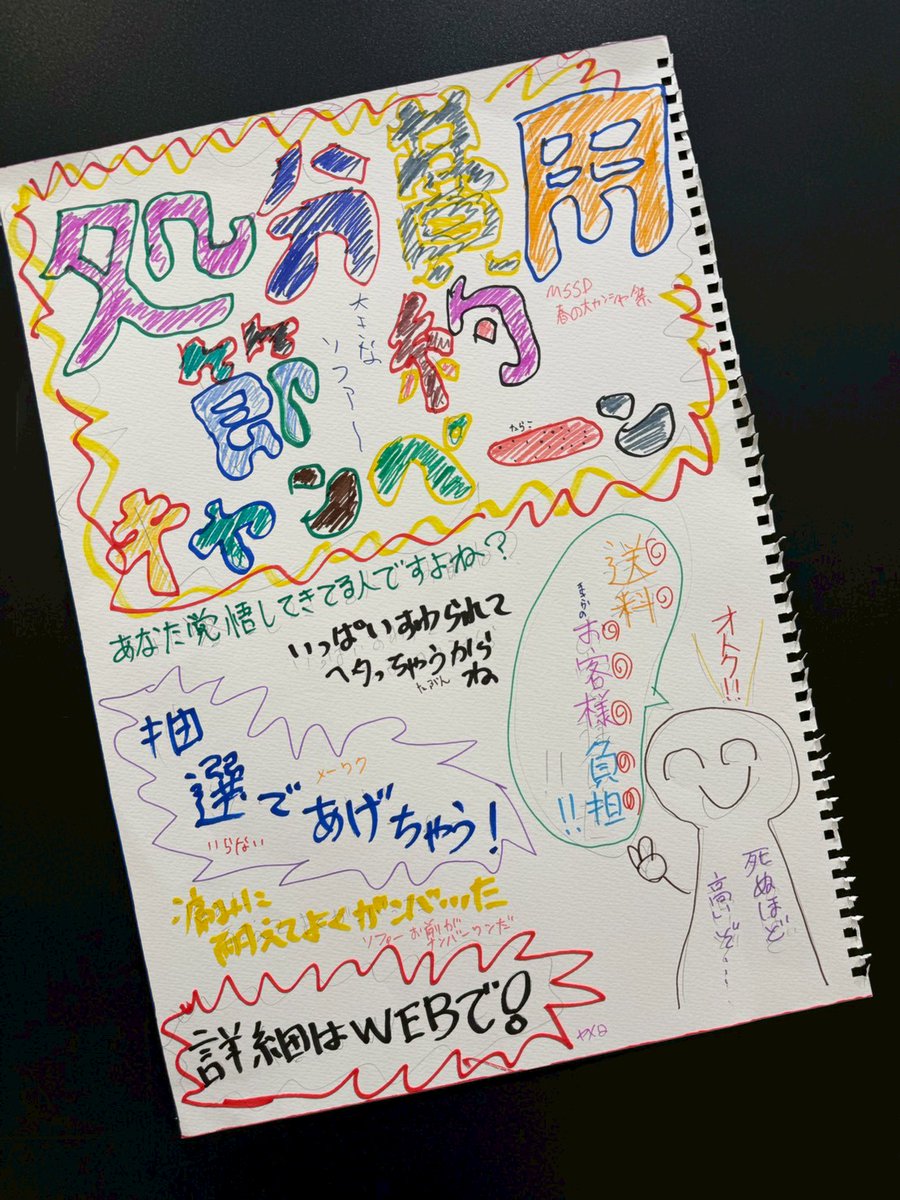 処分費用
節約
キャンペーン
大きなソファー
MSSD
春の大カンシャ祭
たらこ
あなた覚悟してきてる人ですよね?
いっぱいすわられて
ヘタっちゃうから
ね
たぶん
送料
まさかの
お客様
負担
!!
オトク!!
抽選であげちゃう!
メーワク
いらない
痛みに
耐えてよくガンバ…った
ソファーお前が
ナンバーワンだ
死ぬほど
高いぞ…
詳細はWEBで!